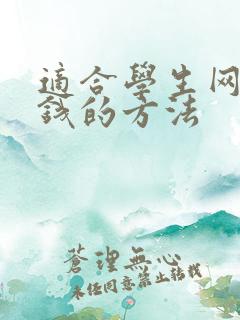 適合學生网
錢的方法
蒼理無心
未经同意禁止转载